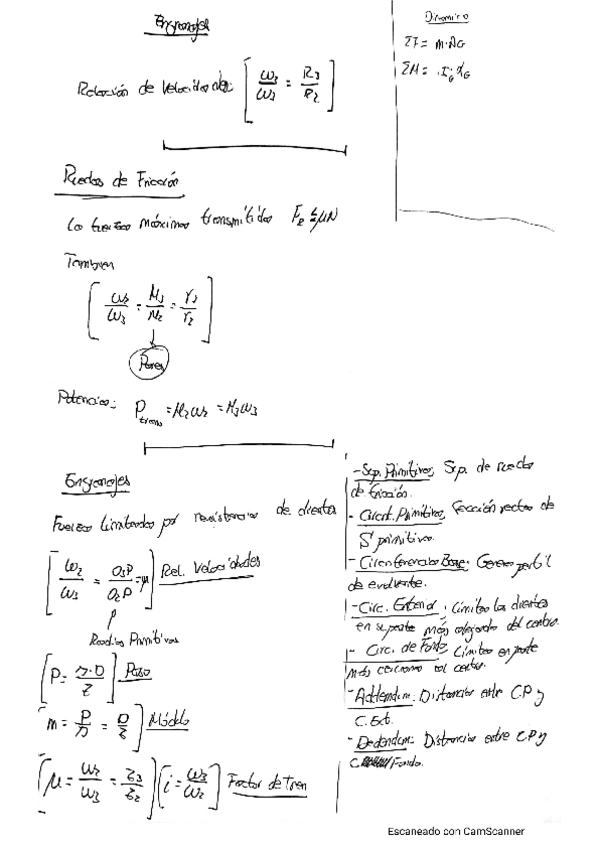 Engranajes
Relación de Velocidades: [ω2/ω3 = R3/R2]
Dinámica
ΣF = m·AG
ΣM = IG·αG
Ruedas de Fricción
La fuerza máxima transmitida FR ≤ μN
Tambien
[ω2/ω3 = M3/M2 = r3/r2]
Pares
Potencia: P trans = M2ω2 = M3ω3
Engranajes
Fuerza Limitada por resistencia de dientes
[ω2/ω3 = O3P/O2P = μ] Rel. Velocidades
Radios Primitivos
[P = π·D/Z] Paso
[m = P/π = D/Z] Módulo
[μ = ω2/ω3 = Z3/Z2] [i = ω3/ω2] Factor de Tren
- Sup. Primitiva, Sup. de rueda
de fricción.
- Circunf. Primitiva, Sección recta de
S primitiva.
- Circunferencia Base: Genera perfil
de evolvente.
- Circ. Exterior: Limita los dientes
en su parte más alejada del centro.
- Circ. de Fondo, Limita en parte
más cercana al centro.
- Addendum: Distancia entre C.P y
C. Ext.
- Dedendum: Distancia entre C.P y
C Fondo.
Escaneado con CamScanner